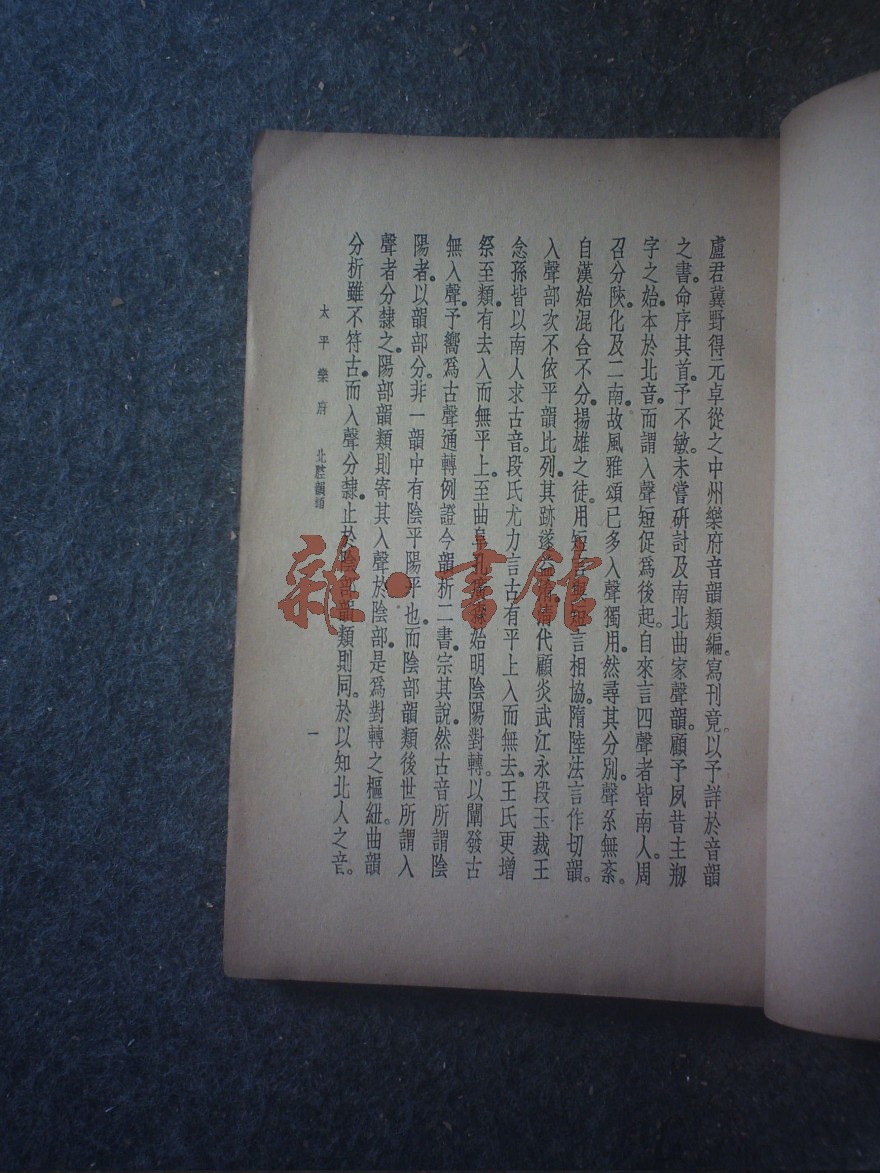 盧君冀野得元卓從之中州樂府音韻類編。寫刊竟。以予詳於音韻
之書。命序其首。予不敏。未嘗研討及南北曲家聲韻。顧予夙昔主刱
字之始。本於北音。而謂入聲短促爲後起。自來言四聲者皆南人。周
召分陝。化及二南。故風雅頌已多入聲獨用。然尋其分別。聲系無紊。
自漢始混合不分。揚雄之徒。用短言與短言相協。隋陸法言作切韻。
入聲部次不依平韻比列。其跡遂。清代顧炎武江永段玉裁王
念孫皆以南人求古音。段氏尤力言古有平上入而無去。王氏更增
祭至類。有去入而無平上。至曲阜孔廣森始明陰陽對轉。以闡發古
無入聲。予嚮爲古聲通轉例證今韻析二書。宗其說。然古音所謂陰
陽者。以韻部分。非一韻中有陰平陽平也。而陰部韻類後世所謂入
聲者分隸之。陽部韻類則寄其入聲於陰部。是爲對轉之樞紐。曲韻
分析雖不符古。而入聲分隸。止於陰部韻類則同。於以知北人之音。
太平樂府 北腔韻類 一
雜·書館